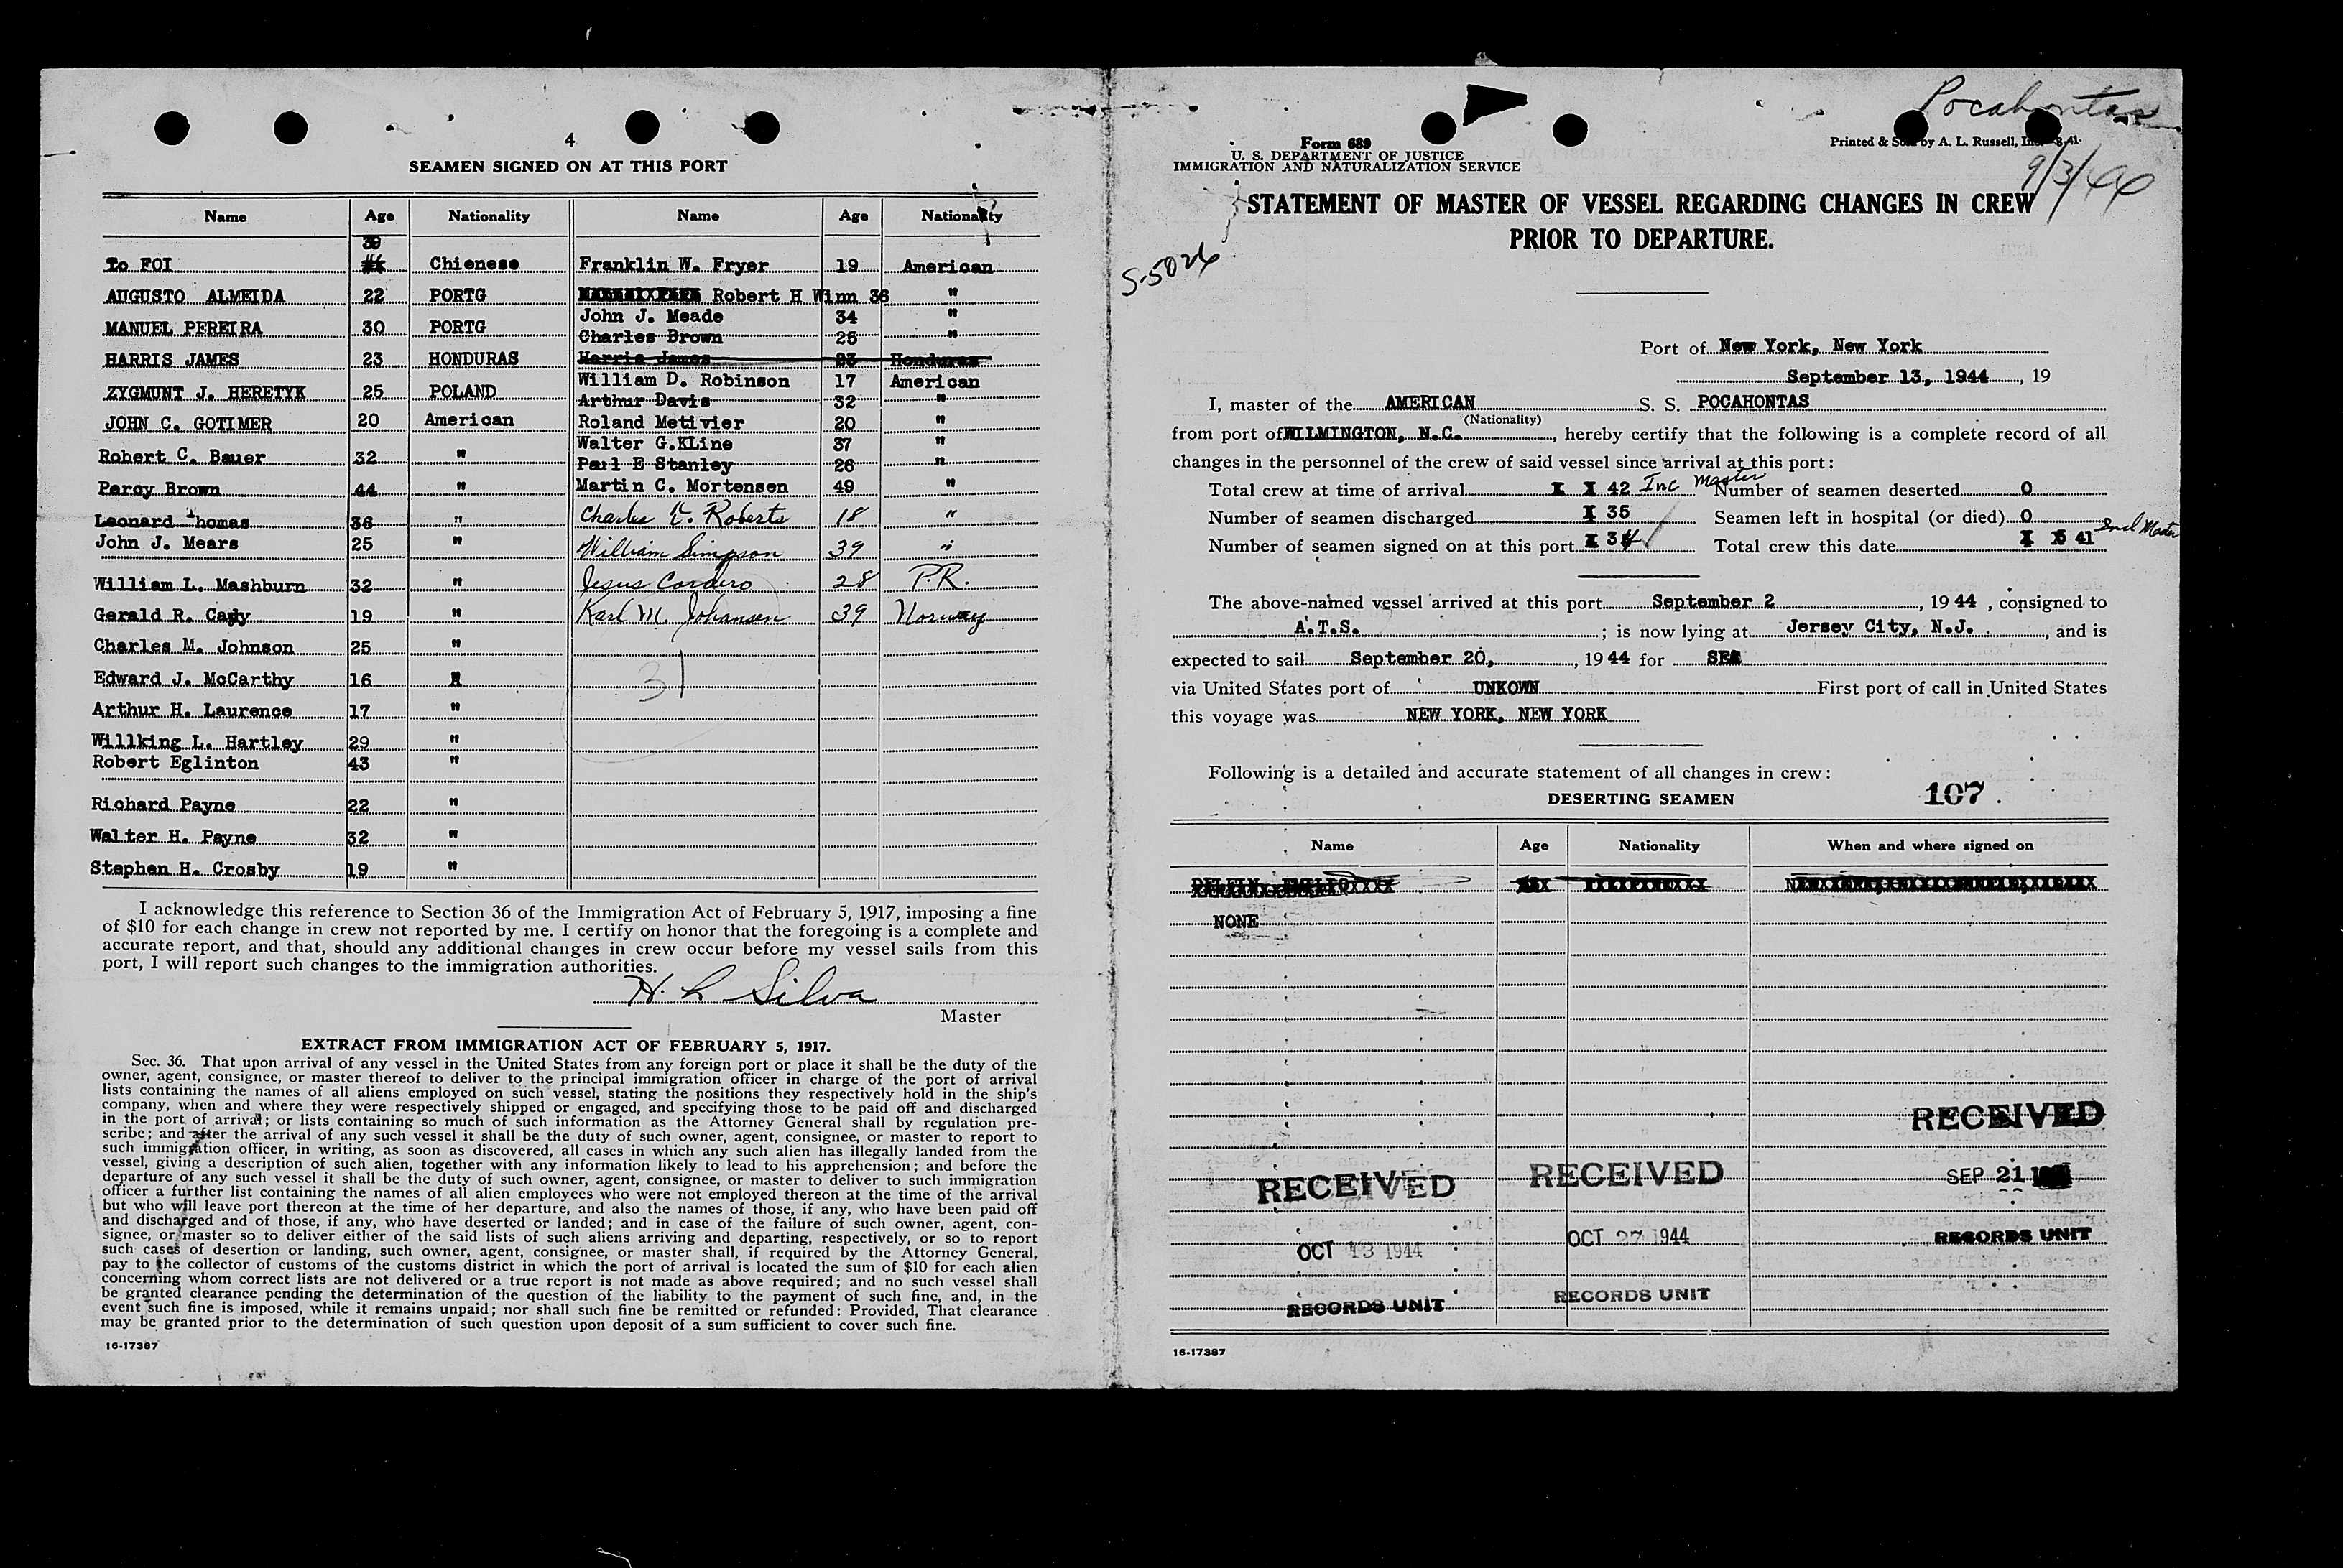 4
SEAMEN SIGNED ON AT THIS PORT
Name Age Nationality Name Age Nationality
39
To FOI Chienese Franklin W. Fryer 19 American
AUGUSTO ALMEIDA 22 PORTG Robert H Winn 36 "
John J. Meade 34 "
MANUEL PEREIRA 30 PORTG
Charles Brown 25 "
HARRIS JAMES 23 HONDURAS Harris James 23 Honduras
William D. Robinson 17 American
ZYGMUNT J. HERETYK 25 POLAND
Arthur Davis 32 "
JOHN C. GOTIMER 20 American Roland Metivier 20 "
Walter G.KLine 37 "
Robert C. Bauer 32 "
Paul E Stanley 26 "
Percy Brown 44 " Martin C. Mortensen 49 "
Leonard Thomas 36 " Charles E. Roberts 18 "
John J. Mears 25 " William Simpson 39 "
William L. Mashburn 32 " Jesus Cordero 28 P.R.
Gerald R. Cady 19 " Karl M. Johansen 39 Norway
Charles M. Johnson 25 "
Edward J. McCarthy 16 " 31
Arthur H. Laurence 17 "
Willking L. Hartley 29 "
Robert Eglinton 43 "
Richard Payne 22 "
Walter H. Payne 32 "
Stephen H. Crosby 19 "
I acknowledge this reference to Section 36 of the Immigration Act of February 5, 1917, imposing a fine
of $10 for each change in crew not reported by me. I certify on honor that the foregoing is a complete and
accurate report, and that, should any additional changes in crew occur before my vessel sails from this
port, I will report such changes to the immigration authorities.
H. L Silva
Master
EXTRACT FROM IMMIGRATION ACT OF FEBRUARY 5, 1917.
Sec. 36. That upon arrival of any vessel in the United States from any foreign port or place it shall be the duty of the
owner, agent, consignee, or master thereof to deliver to the principal immigration officer in charge of the port of arrival
lists containing the names of all aliens employed on such vessel, stating the positions they respectively hold in the ship's
company, when and where they were respectively shipped or engaged, and specifying those to be paid off and discharged
in the port of arrival; or lists containing so much of such information as the Attorney General shall by regulation pre-
scribe; and after the arrival of any such vessel it shall be the duty of such owner, agent, consignee, or master to report to
such immigration officer, in writing, as soon as discovered, all cases in which any such alien has illegally landed from the
vessel, giving a description of such alien, together with any information likely to lead to his apprehension; and before the
departure of any such vessel it shall be the duty of such owner, agent, consignee, or master to deliver to such immigration
officer a further list containing the names of all alien employees who were not employed thereon at the time of the arrival
but who will leave port thereon at the time of her departure, and also the names of those, if any, who have been paid off
and discharged and of those, if any, who have deserted or landed; and in case of the failure of such owner, agent, con-
signee, or master so to deliver either of the said lists of such aliens arriving and departing, respectively, or so to report
such cases of desertion or landing, such owner, agent, consignee, or master shall, if required by the Attorney General,
pay to the collector of customs of the customs district in which the port of arrival is located the sum of $10 for each alien
concerning whom correct lists are not delivered or a true report is not made as above required; and no such vessel shall
be granted clearance pending the determination of the question of the liability to the payment of such fine, and, in the
event such fine is imposed, while it remains unpaid; nor shall such fine be remitted or refunded: Provided, That clearance
may be granted prior to the determination of such question upon deposit of a sum sufficient to cover such fine.
16-17387
Pocahontas
Form 689
U. S. DEPARTMENT OF JUSTICE
IMMIGRATION AND NATURALIZATION SERVICE
Printed & Sold by A. L. Russell, Inc. 8-41
9/3/44
STATEMENT OF MASTER OF VESSEL REGARDING CHANGES IN CREW
PRIOR TO DEPARTURE.
S-5026
Port of New York, New York
September 13, 1944, 19
I, master of the AMERICAN S. S. POCAHONTAS
(Nationality)
from port of WILMINGTON, N.C., hereby certify that the following is a complete record of all
changes in the personnel of the crew of said vessel since arrival at this port:
Total crew at time of arrival 42 Inc Master Number of seamen deserted 0
Number of seamen discharged 35 Seamen left in hospital (or died) 0
Number of seamen signed on at this port 34 Total crew this date 41 Incl Master
The above-named vessel arrived at this port September 2, 1944, consigned to
A.T.S.; is now lying at Jersey City, N.J., and is
expected to sail September 20, 1944 for SEA
via United States port of UNKOWN First port of call in United States
this voyage was NEW YORK, NEW YORK
Following is a detailed and accurate statement of all changes in crew:
DESERTING SEAMEN 107
Name Age Nationality When and where signed on
NONE
RECEIVED
SEP 21
RECORDS UNIT
RECEIVED
OCT 27 1944
RECORDS UNIT
RECEIVED
OCT 13 1944
RECORDS UNIT
16-17387